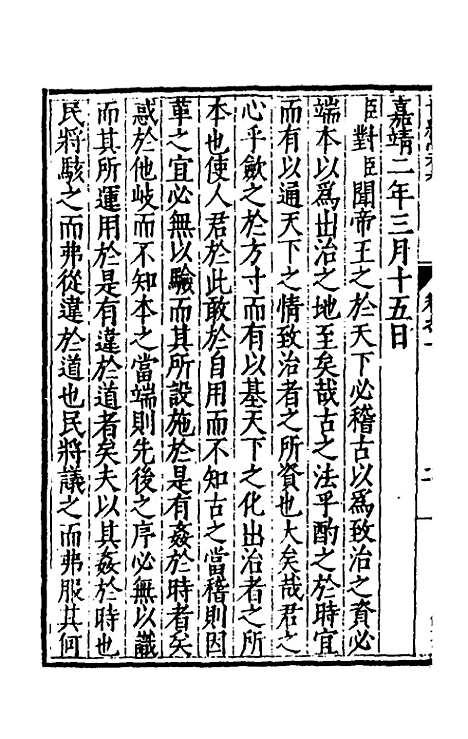 嘉靖二年三月十五日
臣對臣聞帝王之於天下必稽古以爲致治之資必
端本以爲出治之地至矣哉古之法乎酌之於時宜
而有以通天下之情致治者之所資也大矣哉君之
心乎歛之於方寸而有以基天下之化出治者之所
本也使人君於此敢於自用而不知古之當稽則因
革之宜必無以驗而其所設施於是有姦於時者矣
惑於他岐而不知本之當端則先後之序必無以識
而其所運用於是有違於道者矣夫以其姦於時也
民將駭之而弗從違於道也民將議之而弗服其何